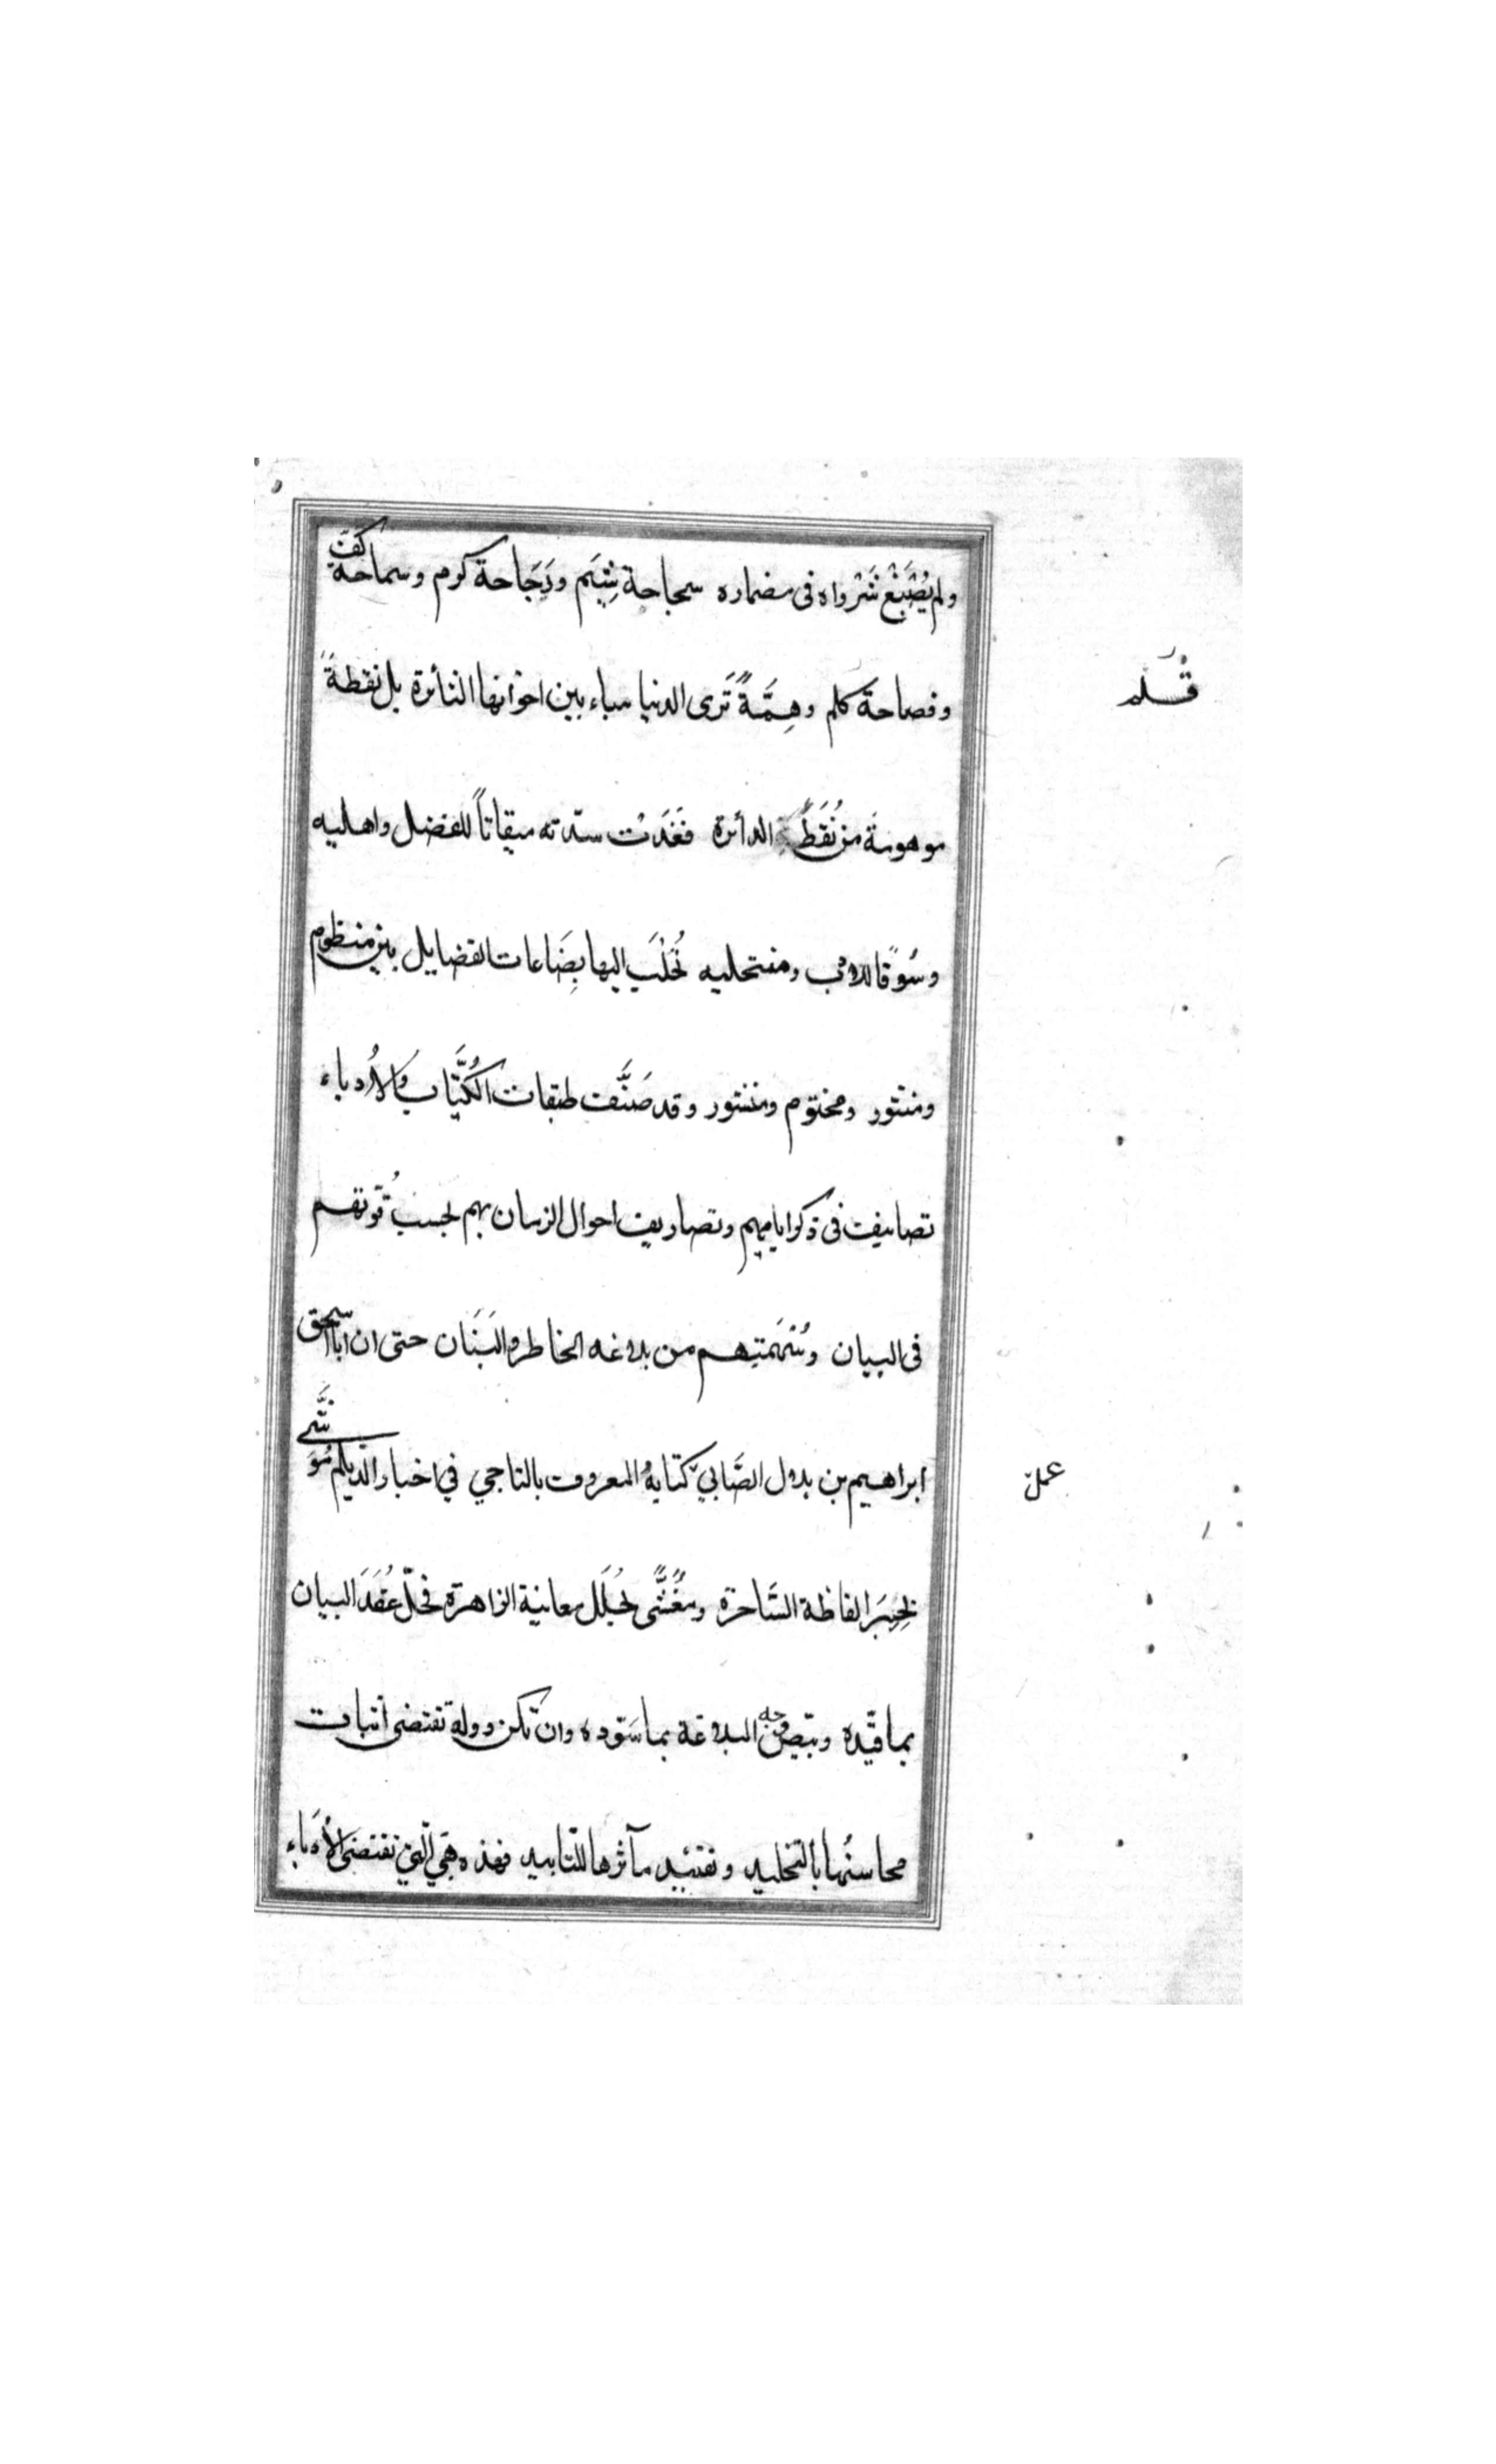 ولم يُصْبَغْ شَرْواه فى مضماره سجاحة شِيَم ورَجَاحة كرم وسماحة كفّ
وفصاحة كلم وهِمَّةً تَرى الدنيا هباء بين اخوانها الثائرة بل نقطةً
قلم
موهومةً من نُقَطِ الدائرة فغَدَت سدّته ميقاتاً للفضل واهليه
وسُوقًا للادب ومنتحليه تُجْلَب اليها بِضَاعات الفضايل بين منظوم
ومنثور ومختوم ومنشور وقد صَنَّفت طبقات الكُتَّاب والأُدباء
تصانيف فى ذكر ايامهم وتصاريف احوال الزمان بهم بحسب قوّتهم
فى البيان وسُهْمَتهم من بلاغه الخاطر والبَنَان حتى ان ابا اسحق
ابراهيم بن هلال الصَّابي كتابهُ المعروف بالتاجي في اخبار الدّيلم مُوَشَّى
عمل
بحِبَر الفاظة السَّاحرة ومغُشًّى بحُلَل معانية الزاهرة فحَلّ عُقَدَ البيان
بما قيّده وبيّض وجه البلاغة بما سَوّده وان تكن دولة تقتضى اثبات
محاسنُها بالتخليد وتقييد مآثرها للتّابيد فهذه هِيَ الّتي تقتضى الأُدَباء